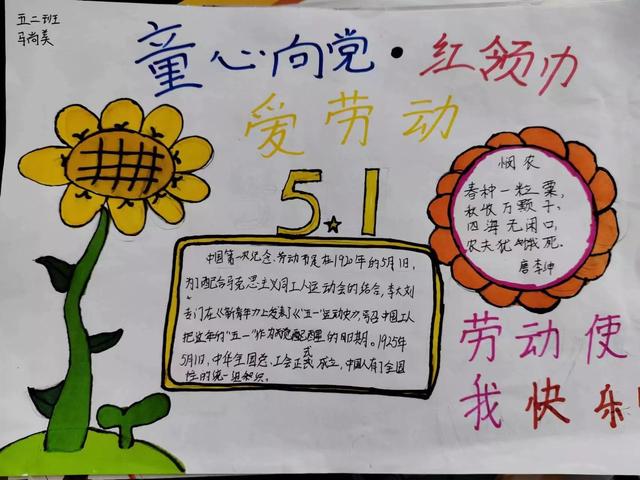 五二班
马尚美
童心向党·红领巾
爱劳动
5.1
中国第一次纪念劳动节是在1920年的5月1日,
为了配合马克思主义同工人运动会的结合,李大钊
专门在《新青年》上发表了《"五一"运动史》,号召中国工人
把这年的"五一"作为觉醒的日期。1925年
5月1日,中华全国总工会正式成立,中国人有了全国
性的统一组织。
悯农
春种一粒粟,
秋收万颗子。
四海无闲田,
农夫犹饿死。
唐李绅
劳动使
我快乐!